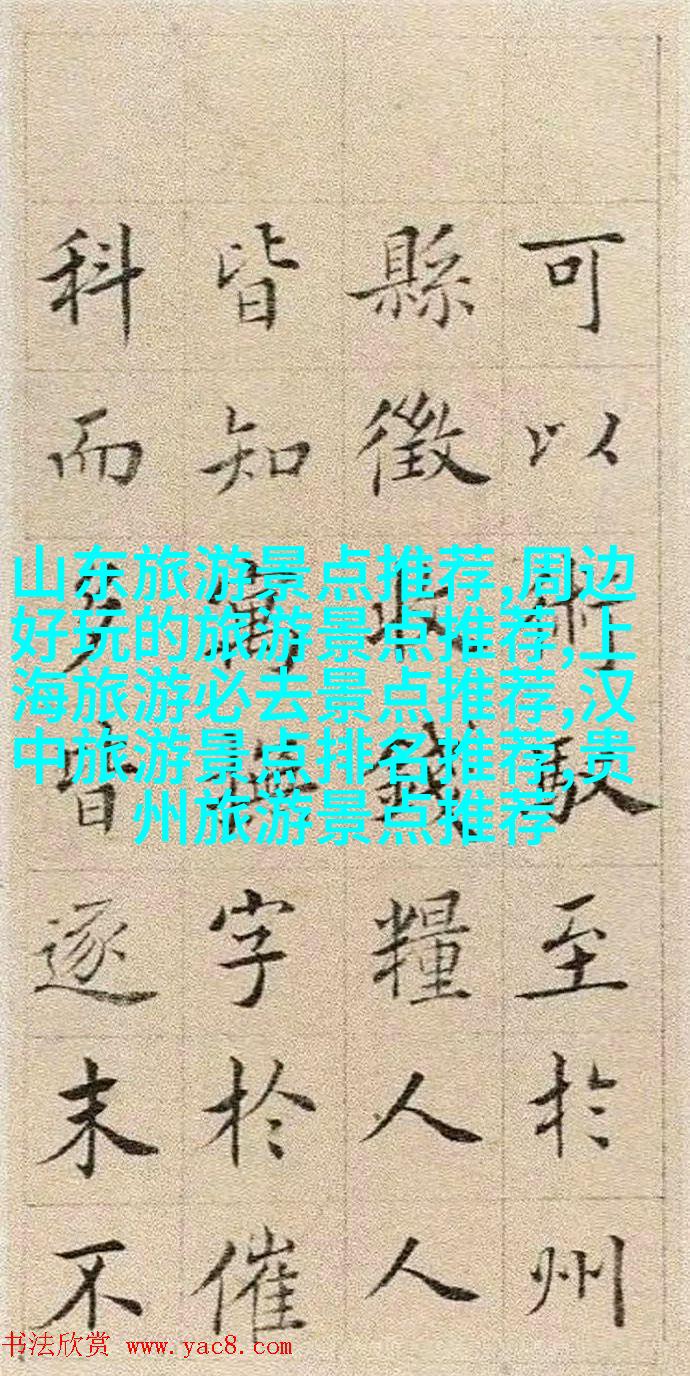 可以術馭至於州
縣徵收錢糧人人
皆知寓撫字於催
科而逐末不
山东旅游景点推荐,周边
好玩的旅游景点推荐,上
海旅游必去景点推荐,汉
中旅游景点排名推荐,贵
州旅游景点推荐
书法欣赏 www.yac8.com